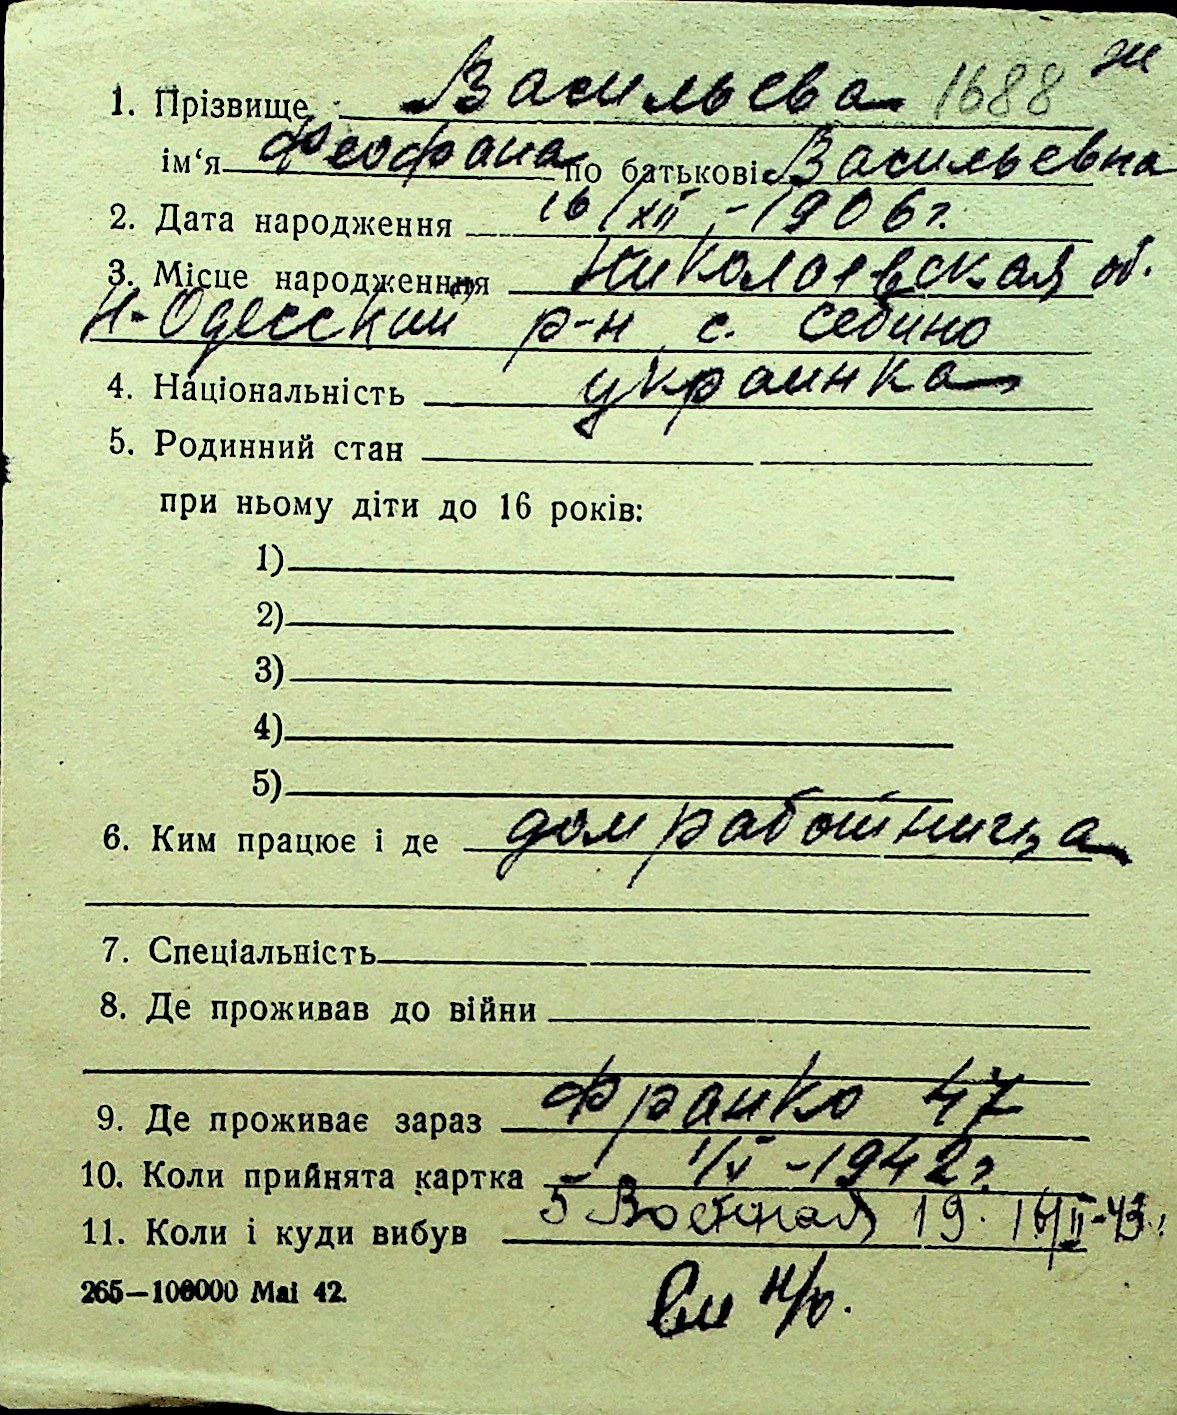 ж
1. Прізвище Васильева 1688
ім‘я Феофана по батькові Васильевна
2. Дата народження 16/XII - 1906 г.
3. Місце народженння Николаевская об.
Н-Одесский р-н с. Себино
4. Національність украинка
5. Родинний стан
при ньому діти до 16 років:
1)
2)
3)
4)
5)
6. Ким працює і де домработница
7. Спеціальність
8. Де проживав до війни
9. Де проживає зараз Франко 47
10. Коли прийнята картка 1/V - 1942 г.
11. Коли і куди вибув 5 Военная 19. 16/II-43 г.
265—100000 Mai 42.